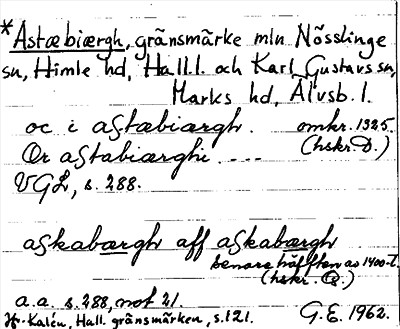 *Astæbiærgh, gränsmärke mln Nösslinge
sn, Himle hd, Hall.l. och Karl Gustavs sn,
Marks hd, Älvsb. l.
oc i astæbiærgh. omkr. 1325.
Or astabiærghi.... (hskr. D.)
VGL, s. 288.
askabærgh aff askabærgh
senare hälften av 1400-t.
(hskr. Q.)
a.a. s. 288, not 21.
Jfr. Kalén, Hall. gränsmärken, s. 121. G.E. 1962.